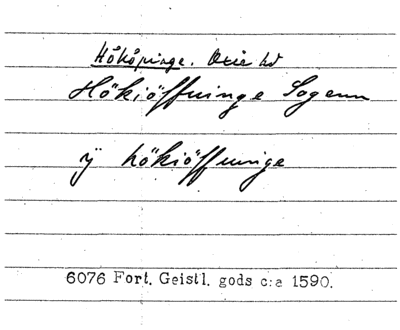 Hököpinge. Oxie hd
Hökiöffuinge Sogenn
ÿ hökiöffuinge
6076 Fort. Geistl. gods c:a 1590.